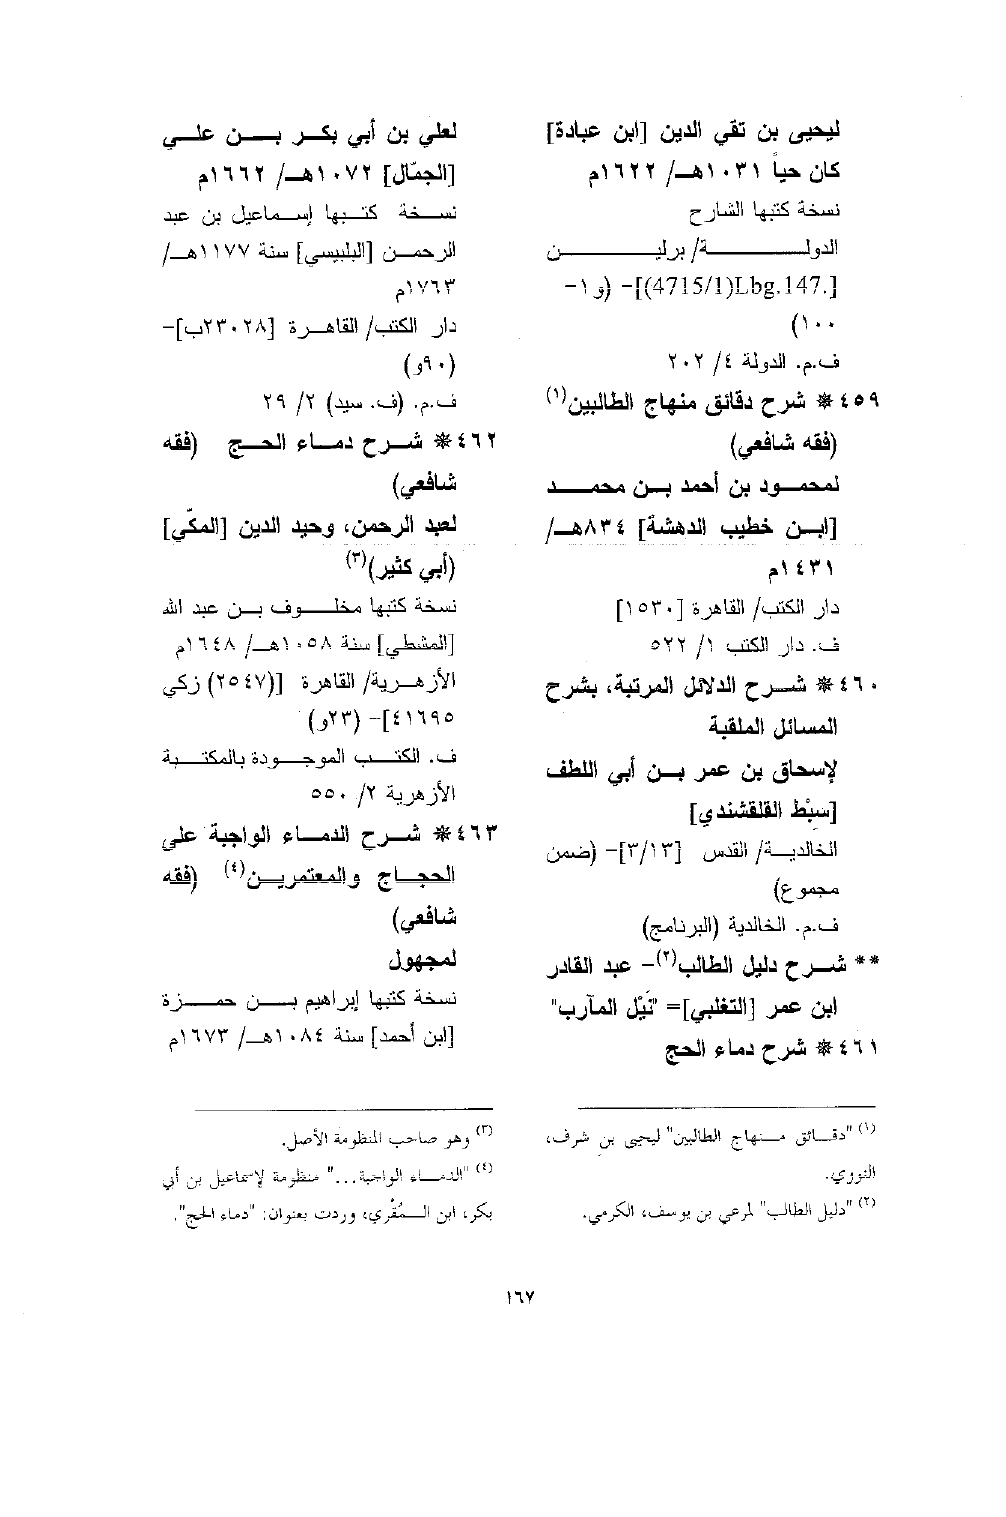 ليحيى بن تقي الدين [ابن عبادة]
كان حياً ١٠٣١هـ/ ١٦٢٢م
نسخة كتبها الشارح
الدولة/ برلين
[Lbg.147.(4715/1)]- (و١-
١٠٠)
ف.م. الدولة ٤/ ٢٠٢
٤٥٩* شرح دقائق منهاج الطالبين(١)
(فقه شافعي)
لمحمود بن أحمد بن محمد
[ابن خطيب الدهشة] ٨٣٤هـ/
١٤٣١م
دار الكتب/ القاهرة [١٥٣٠]
ف. دار الكتب ١/ ٥٢٢
٤٦٠* شرح الدلائل المرتبة، بشرح
المسائل الملقبة
لإسحاق بن عمر بن أبي اللطف
[سبْط القلقشندي]
الخالدية/ القدس [٣/١٣]- (ضمن
مجموع)
ف.م. الخالدية (البرنامج)
** شرح دليل الطالب(٢)- عبد القادر
ابن عمر [التغلبي]= "نَيْل المآرب"
٤٦١* شرح دماء الحج
(١) "دقائق منهاج الطالبين" ليحيى بن شرف،
النووي.
(٢) "دليل الطالب" لمرعي بن يوسف، الكرمي.
لعلي بن أبي بكر بن علي
[الجمّال] ١٠٧٢هـ/ ١٦٦٢م
نسخة كتبها إسماعيل بن عبد
الرحمن [البلبيسي] سنة ١١٧٧هـ/
١٧٦٣م
دار الكتب/ القاهرة [٢٣٠٢٨ب]-
(٩٠و)
ف.م. (ف. سيد) ٢/ ٢٩
٤٦٢* شرح دماء الحج (فقه
شافعي)
لعبد الرحمن، وحيد الدين [المكّي]
(أبي كثير)(٣)
نسخة كتبها مخلوف بن عبد الله
[المشطي] سنة ١٠٥٨هـ/ ١٦٤٨م
الأزهرية/ القاهرة [(٢٥٤٧) زكي
٤١٦٩٥]- (٢٣و)
ف. الكتب الموجودة بالمكتبة
الأزهرية ٢/ ٥٥٠
٤٦٣* شرح الدماء الواجبة على
الحجاج والمعتمرين(٤) (فقه
شافعي)
لمجهول
نسخة كتبها إبراهيم بن حمزة
[ابن أحمد] سنة ١٠٨٤هـ/ ١٦٧٣م
(٣) وهو صاحب المنظومة الأصل.
(٤) "الدماء الواجبة..." منظومة لإسماعيل بن أبي
بكر، ابن المُقْري، وردت بعنوان: "دماء الحج".
١٦٧